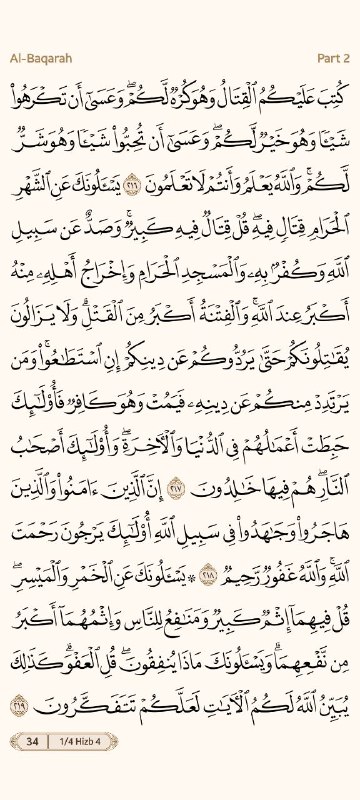 Al-Baqarah
Part 2
كُتِبَ عَلَيْكُمُ ٱلْقِتَالُ وَهُوَ كُرْهٌ لَّكُمْ ۖ وَعَسَىٰٓ أَن تَكْرَهُوا۟
شَيْـًٔا وَهُوَ خَيْرٌ لَّكُمْ ۖ وَعَسَىٰٓ أَن تُحِبُّوا۟ شَيْـًٔا وَهُوَ شَرٌّ
لَّكُمْ ۗ وَٱللَّهُ يَعْلَمُ وَأَنتُمْ لَا تَعْلَمُونَ ٢١٦ يَسْـَٔلُونَكَ عَنِ ٱلشَّهْرِ
ٱلْحَرَامِ قِتَالٍ فِيهِ ۖ قُلْ قِتَالٌ فِيهِ كَبِيرٌ ۖ وَصَدٌّ عَن سَبِيلِ
ٱللَّهِ وَكُفْرٌۢ بِهِۦ وَٱلْمَسْجِدِ ٱلْحَرَامِ وَإِخْرَاجُ أَهْلِهِۦ مِنْهُ
أَكْبَرُ عِندَ ٱللَّهِ ۚ وَٱلْفِتْنَةُ أَكْبَرُ مِنَ ٱلْقَتْلِ ۗ وَلَا يَزَالُونَ
يُقَـٰتِلُونَكُمْ حَتَّىٰ يَرُدُّوكُمْ عَن دِينِكُمْ إِنِ ٱسْتَطَـٰعُوا۟ ۚ وَمَن
يَرْتَدِدْ مِنكُمْ عَن دِينِهِۦ فَيَمُتْ وَهُوَ كَافِرٌ فَأُو۟لَـٰٓئِكَ
حَبِطَتْ أَعْمَـٰلُهُمْ فِى ٱلدُّنْيَا وَٱلْـَٔاخِرَةِ ۖ وَأُو۟لَـٰٓئِكَ أَصْحَـٰبُ
ٱلنَّارِ ۖ هُمْ فِيهَا خَـٰلِدُونَ ٢١٧ إِنَّ ٱلَّذِينَ ءَامَنُوا۟ وَٱلَّذِينَ
هَاجَرُوا۟ وَجَـٰهَدُوا۟ فِى سَبِيلِ ٱللَّهِ أُو۟لَـٰٓئِكَ يَرْجُونَ رَحْمَتَ
ٱللَّهِ ۚ وَٱللَّهُ غَفُورٌ رَّحِيمٌ ٢١٨ ۞ يَسْـَٔلُونَكَ عَنِ ٱلْخَمْرِ وَٱلْمَيْسِرِ ۖ
قُلْ فِيهِمَآ إِثْمٌ كَبِيرٌ وَمَنَـٰفِعُ لِلنَّاسِ وَإِثْمُهُمَآ أَكْبَرُ
مِن نَّفْعِهِمَا ۗ وَيَسْـَٔلُونَكَ مَاذَا يُنفِقُونَ ۖ قُلِ ٱلْعَفْوَ ۗ كَذَٰلِكَ
يُبَيِّنُ ٱللَّهُ لَكُمُ ٱلْـَٔايَـٰتِ لَعَلَّكُمْ تَتَفَكَّرُونَ ٢١٩
34 | 1/4 Hizb 4